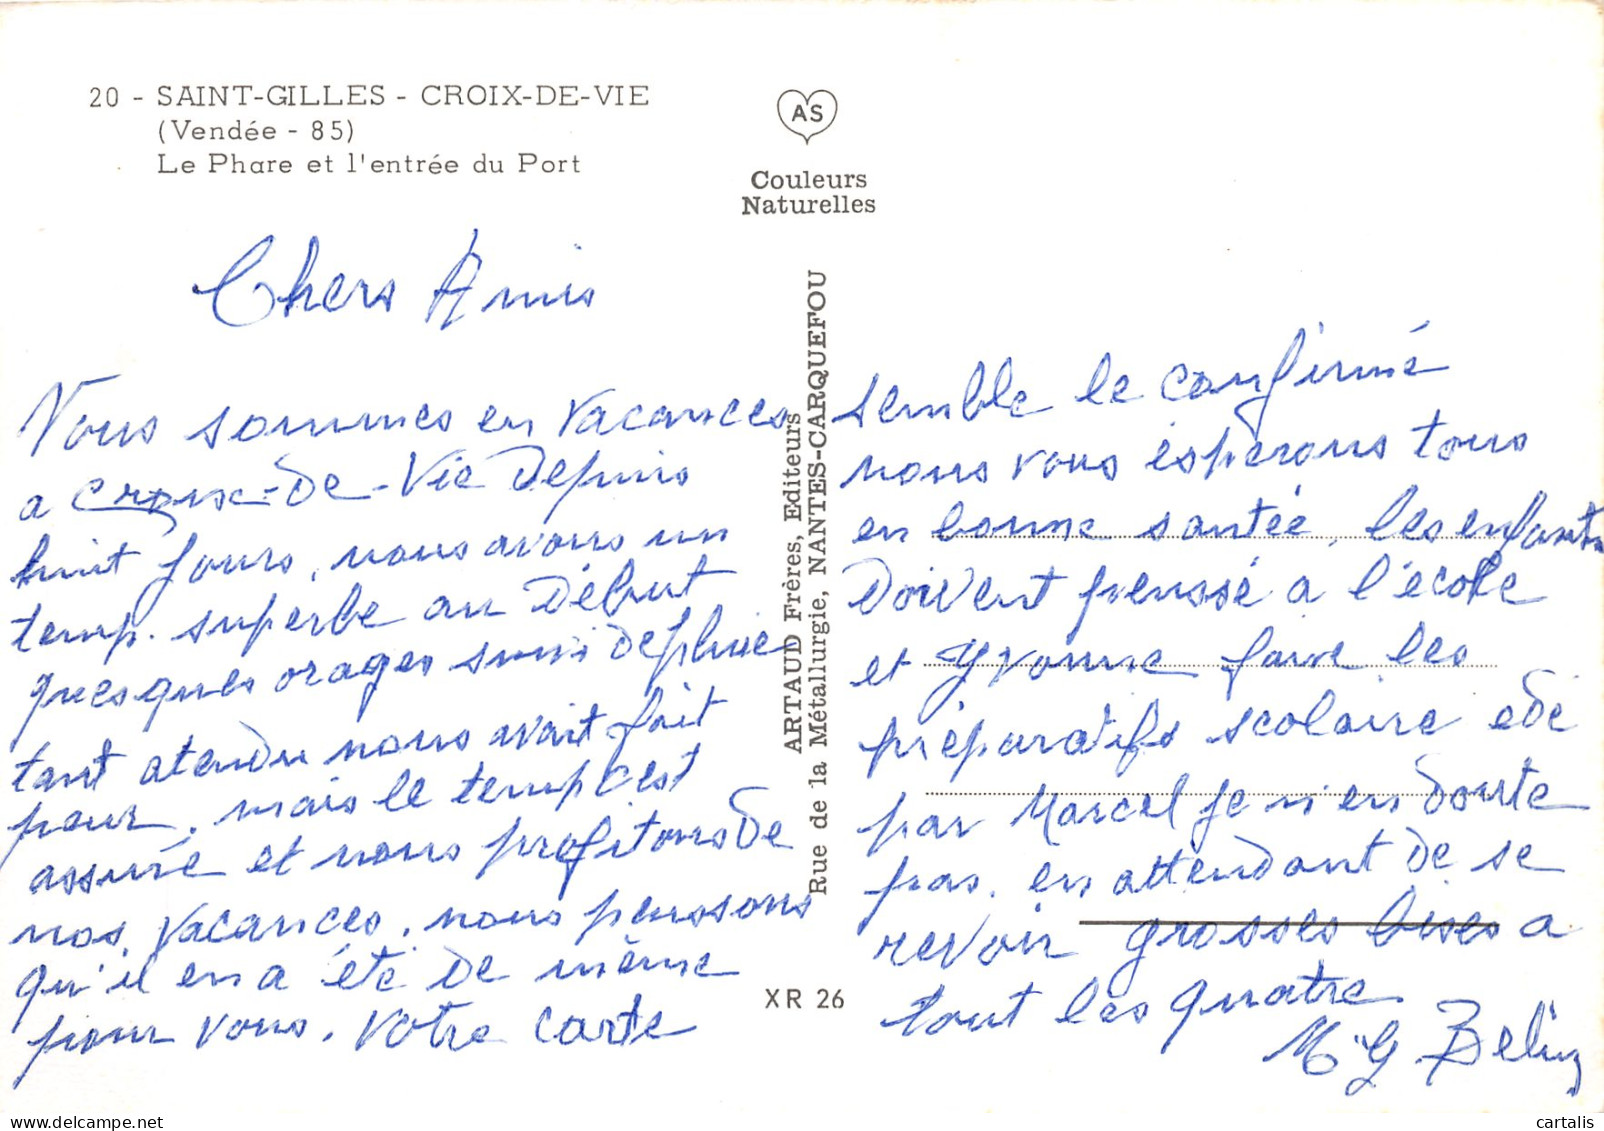 20 - SAINT-GILLES - CROIX-DE-VIE
(Vendée - 85)
Le Phare et l'entrée du Port
AS
Couleurs
Naturelles
ARTAUD Frères, Editeurs
Rue de la Métallurgie, NANTES-CARQUEFOU
XR 26
Chers Amis
Nous sommes en vacances
a Croix-De-Vie Depuis
huit jours, nous avons un
temp. superbe au Début
quesques orages suivi de pluie
tant atendu nous avait fait
peur, mais le temp c'est
assuré et nous profitons De
nos vacances, nous pensons
qu'il en a été De même
pour vous. Votre carte
semble le confirmé
nous vous espérons tous
en bonne santée, les enfants
Doivent penssé a l'école
et Yvonne faire les
préparatifs scolaire edé
par Marcel je n'en doute
pas. en attendant De se
revoir grosses bises a
tout les quatre
M G
cartalis